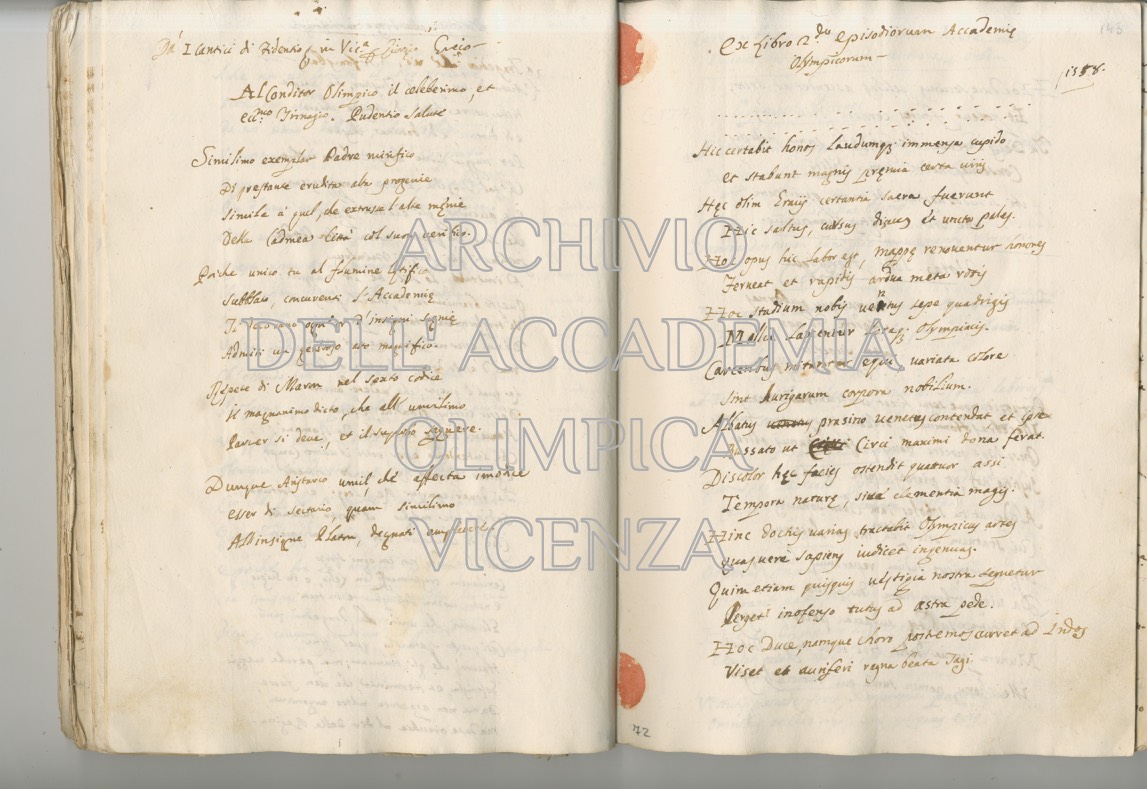 Da' I Cantici di Fidentio, in Vic.a Giorgio Greco
Al Conditor Olimpico il celeberimo, et
ecc.mo Trinagio. Pudentio salute
Similimo exemplar Padre mirifico
Di prestante erudita alta progenie
Simile à quel, che extrusse l'alte męnie
Della Cadmea Città col suon verifico.
Poiche unico tu al
subblaio, concurenti l'Accademię
ogni insigni
Admiri un generoso ato magnifico.
Repete di Maron nel sexto codice
Il magnanimo dicto, che all' umilimo
Parcer si deve, et il superbo
Dunque Aristarco umil, che affecta imodice
esser di sectario, quam similimo
All'insigne Platon, degnati
Ex Libro 2.do Episodiorum Accademię
Olympicorum
1558.
Hic certabit honos laudumq; immensa cupido
et stabunt magnis pręmia certa viris
Hęc olim Graijs certamina sacra fuerunt
Hic saltus, cursus discus et uncta pales.
Hoc opus hic labor est, mappę renoventur honores
Ferveat et rapidis ardua meta rotis
Hoc stadium nobis ventus sepe quadrigis
Mallis Olympiacis.
Carceribus equi variata colore
Sint Aurigarum corpora nobilium.
Albatus prasino venetus contendat et ipse
Russato ut Circi maximi dona ferat.
Discolor hęc facies ostendit quatuor assi
Tempora naturę, sivi elementia magis.
Hinc doctis varias tractabit Olympicus artes
quas vere sapiens iudicet ingenuas.
Quin etiam quisquis vestigia nostra sequetur
Perget inofenso tutus ad astra pede.
Hoc Duce, namque choro postremos curret ad Indos
Viset et auriferi regna beata Tagi
72
ARCHIVIO
DELL'ACCADEMIA
OLIMPICA
VICENZA